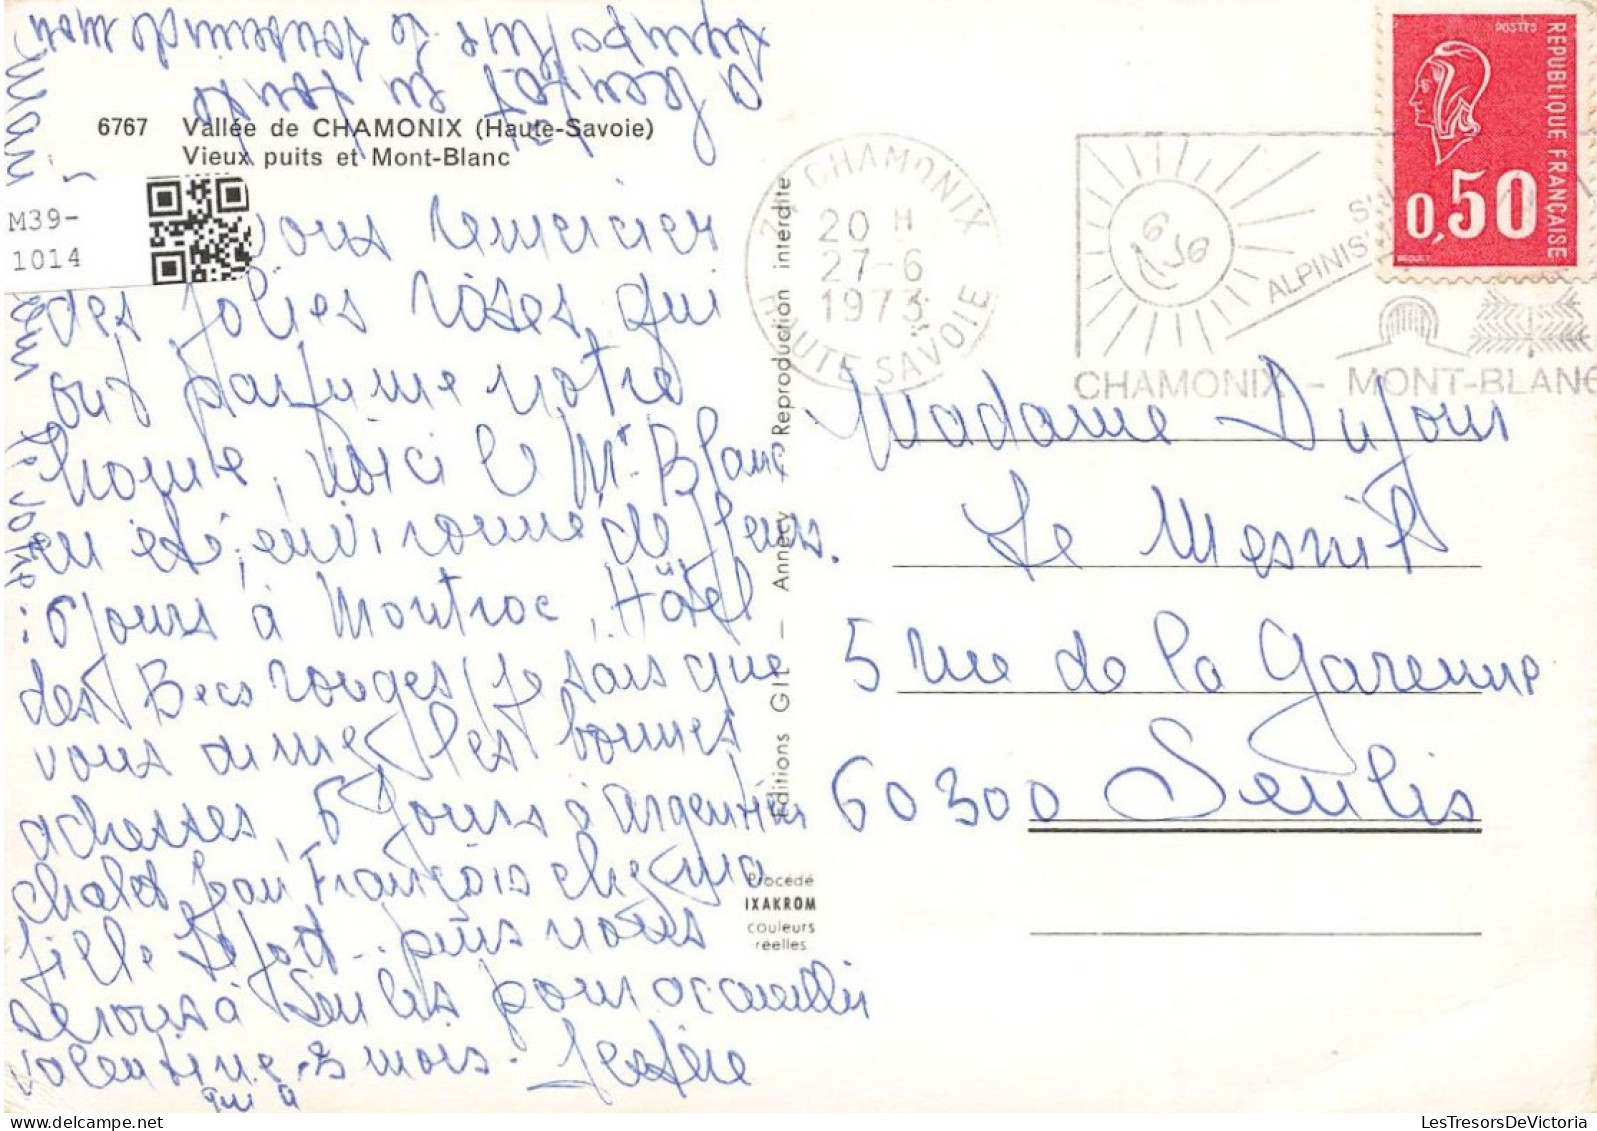 6767 Vallée de CHAMONIX (Haute-Savoie)
Vieux puits et Mont-Blanc
M39-
1014
vous remercier
des jolies roses qui
ont parfumé notre
home, voici le Mt Blanc
en été, environné de fleurs.
6 jours à Montroc, Hôtel
des Becs rouges (je sais que
vous aimez les bonnes
adresses, 6 jours à Argentière
chalet Jean François chez ma
fille puis nous
serons à Senlis pour accueillir
Valentine 3 mois.
qui a
A bientôt
mari
Editions GIL — Annecy Reproduction interdite
Procédé
IXAKROM
couleurs
réelles
74 CHAMONIX
20 H
27-6
1973
HAUTE SAVOIE
ALPINIS
CHAMONIX - MONT-BLANC
POSTES
REPUBLIQUE FRANÇAISE
0,50
BEQUET
Madame Dufour
Le Mesnil
5 rue de la Garenne
60300 Senlis
LesTresorsDeVictoria.com